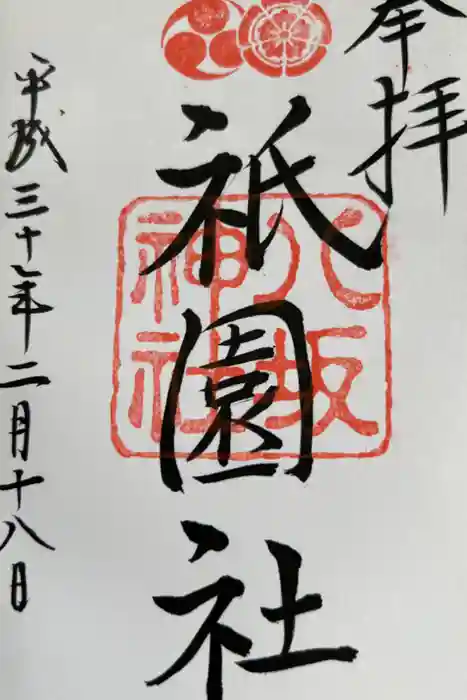 奉拝
祇園社
八坂
神社
平成三十年二月十八日